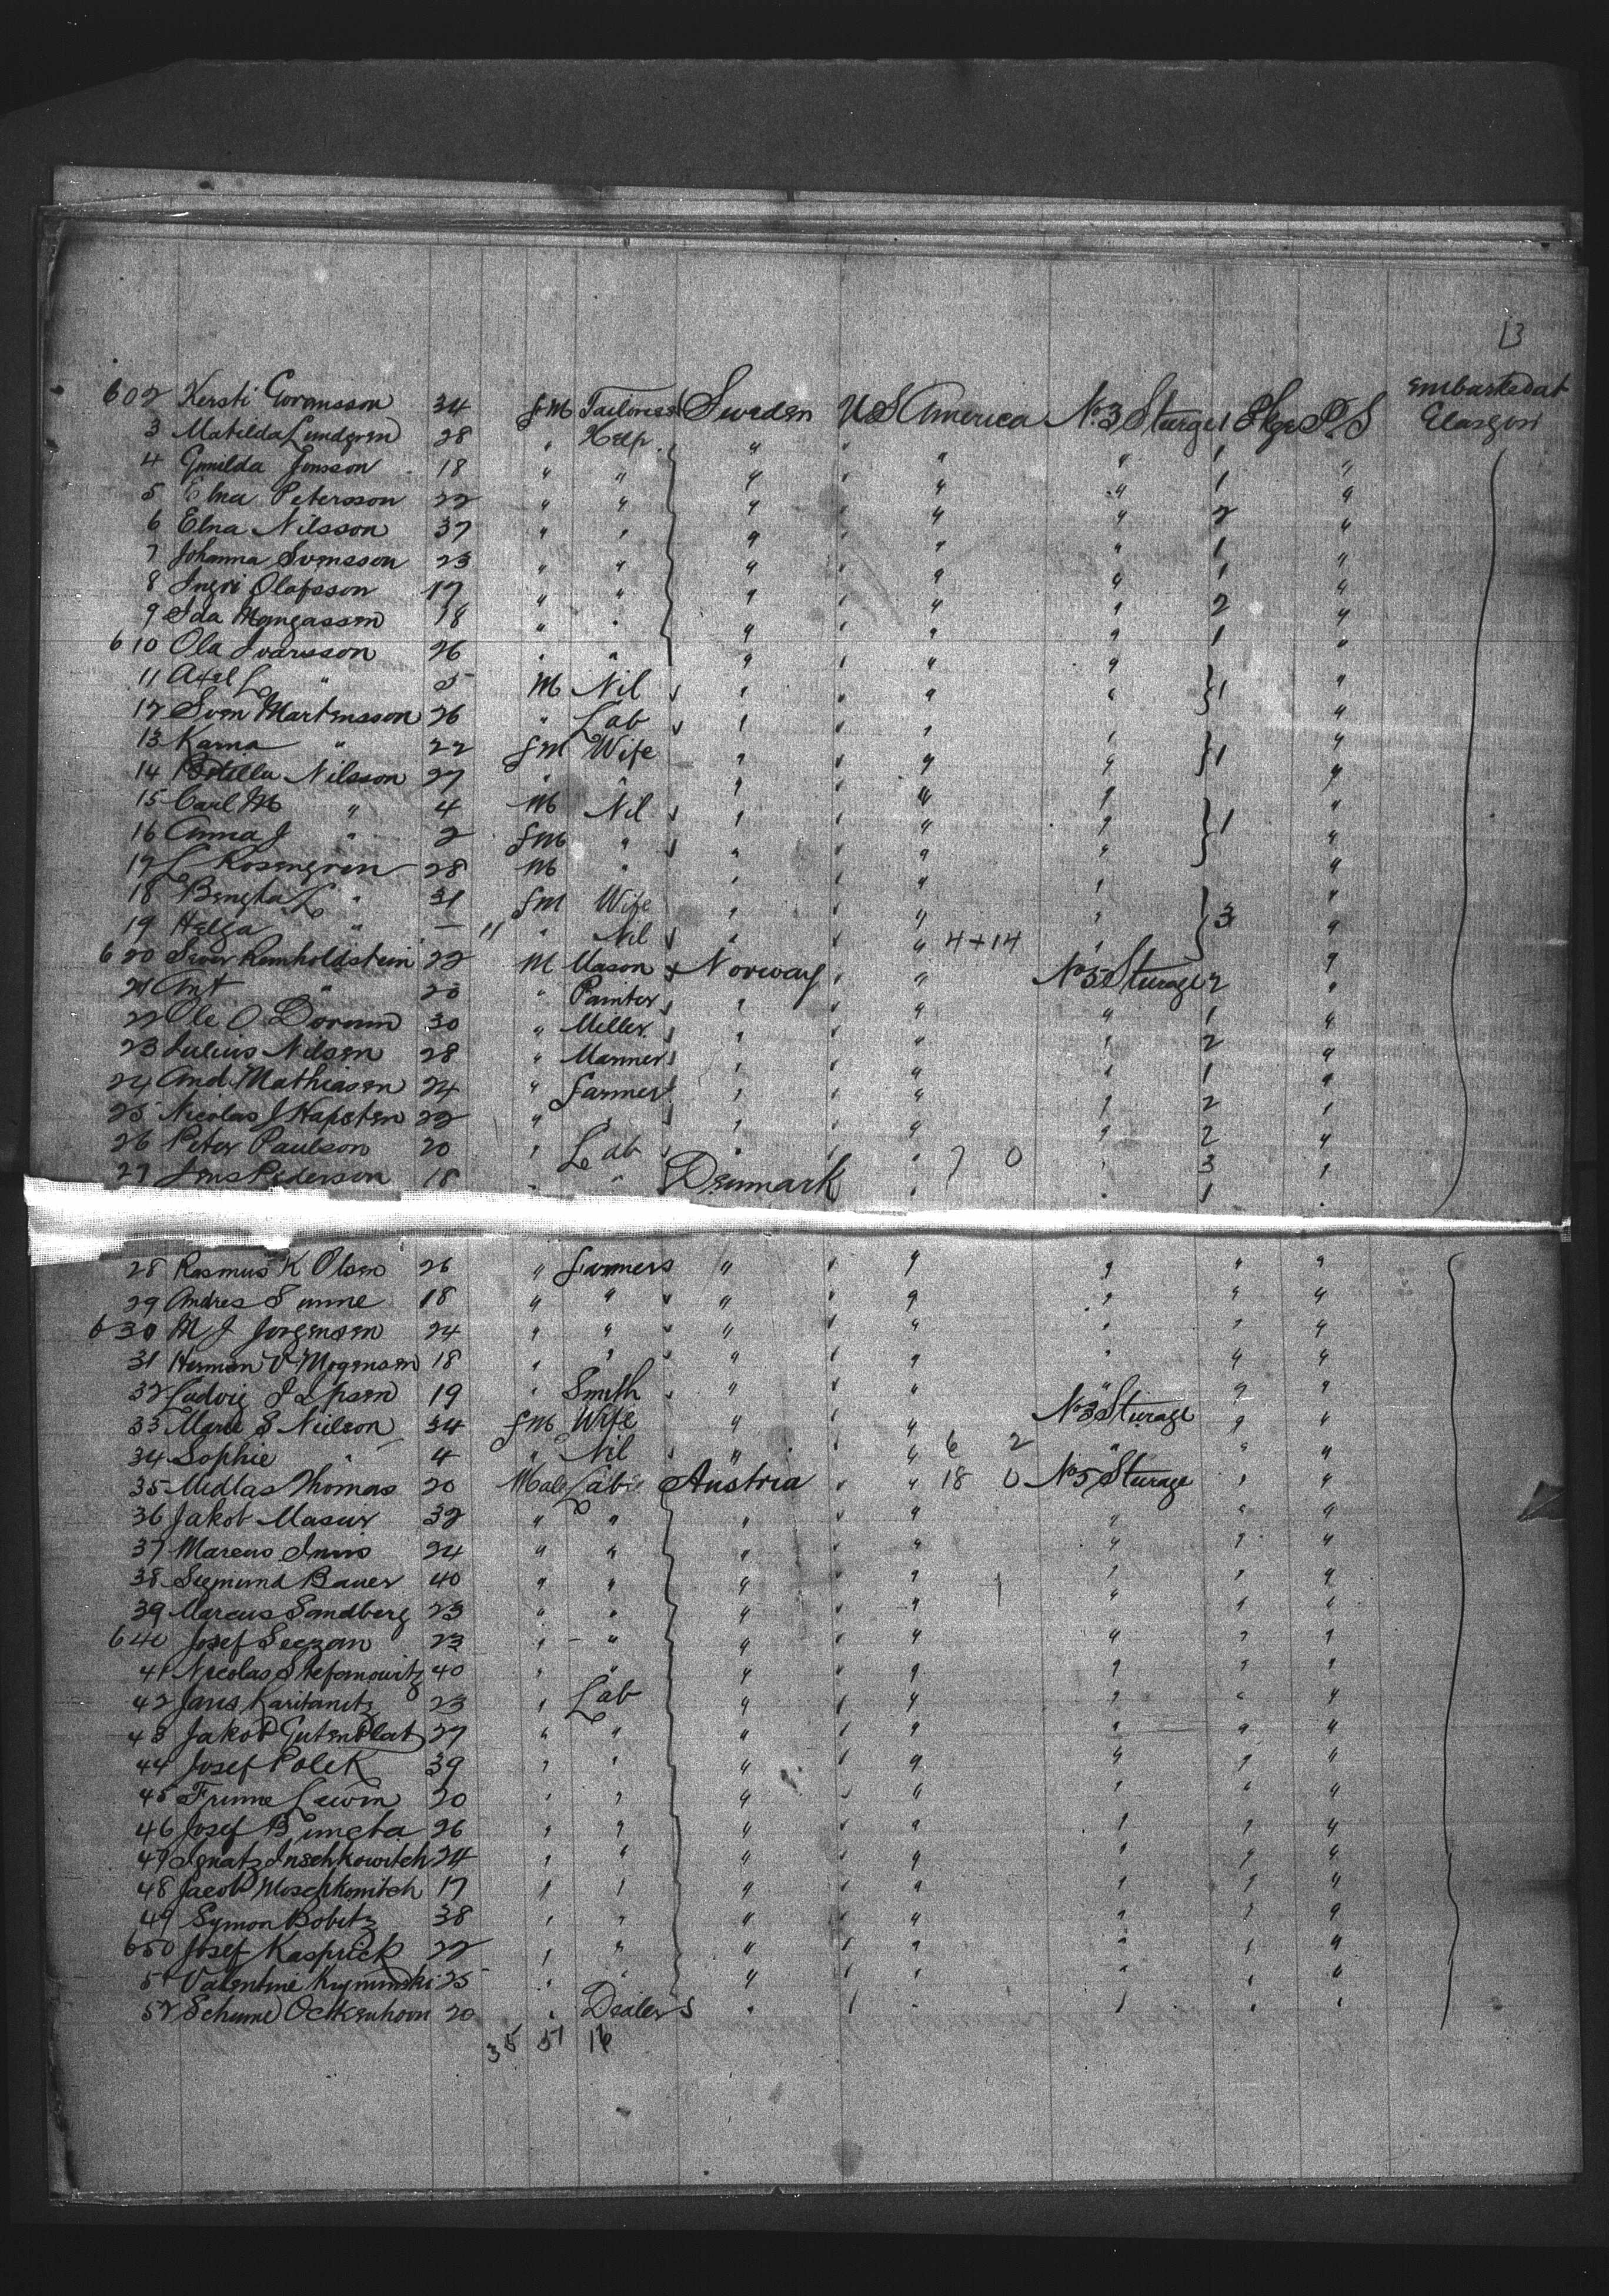 13
602 Kersti Goransson 34 fm Tailoress Sweden U S America No 3 Sturge 1 Pkge P.S Embarked at Glasgow
3 Matilda Lundgren 28 " Help " " " " 1 "
4 Gunilda Jonsson 18 " " " " " " 1 "
5 Elna Petersson 22 " " " " " " 2 "
6 Elna Nilsson 37 " " " " " " 1 "
7 Johanna Svensson 23 " " " " " " 1 "
8 Ingri Olafsson 17 " " " " " " 2 "
9 Ida Mongasson 18 " " " " " " 1 "
610 Ola Ivarsson 26 " " " " " " "
11 Axel L " 5 M Nil " " " " } 1 "
12 Sven Martensson 26 " Lab " " " " "
13 Karna " 22 fm Wife " " " " } 1 "
14 Botella Nilsson 27 " " " " " " "
15 Carl M " 4 M Nil " " " " } 1 "
16 Anna J " 2 fm " " " " " "
17 L Rosengren 28 M " " " " " "
18 Bengta L " 31 fm Wife " " " " } 3 "
19 Helga " — " " Nil " " " 4+14 " "
620 Siver Remholdstein 22 M Mason Norway " " No 5 Sturage 2 "
21 Ant " 20 " Painter " " " " 1 "
22 Ole O Dorum 30 " Miller " " " " 2 "
23 Julius Nilsen 28 " Mariner " " " " 1 "
24 And. Mathiasen 24 " Farmer " " " " 2 "
25 Nicolas J Hapsten 22 " " " " " " 2 "
26 Peter Paulson 20 " Lab " " " 7 0 " 3 "
27 Jens Pederson 18 " " Denmark " " 1 "
28 Rasmus K Olsen 26 " Farmers " " " " " "
29 Andres Sunne 18 " " " " " " " "
630 M J Jorgensen 24 " " " " " " " "
31 Herman V Mogensen 18 " " " " " " " "
32 Ludvig J Ipsen 19 " Smith " " " " " "
33 Marie S Neilson 34 fm Wife " " " No 3 Sturage " "
34 Sophie " 4 " Nil " " " 6 2 " " "
35 Midlas Thomas 20 Male Lab Austria " " 18 0 No 5 Sturage " "
36 Jakob Masur 32 " " " " " " " "
37 Marcus Inio 24 " " " " " " " "
38 Sigmund Bauer 40 " " " " " " " "
39 Marcus Sandberg 23 " " " " " " " "
640 Josef Seczan 23 " " " " " " " "
41 Nicolas Stefanowitz 40 " " " " " " " "
42 Janis Karitanitz 23 " Lab " " " " " "
43 Jakob Gutenplat 27 " " " " " " " "
44 Josef Polek 39 " " " " " " " "
45 Frume Lewin 20 " " " " " " " "
46 Josef Buncta 26 " " " " " " " "
47 Ignatz Inschkowitch 24 " " " " " " " "
48 Jacob Moschkowitch 17 " " " " " " " "
49 Symon Bobitz 38 " " " " " " " "
650 Josef Kasprick 22 " " " " " " " "
51 Valentine 25 " " " " " " " "
52 Schume Ockenhorn 20 " Dealer " " " " " "
35 51 16